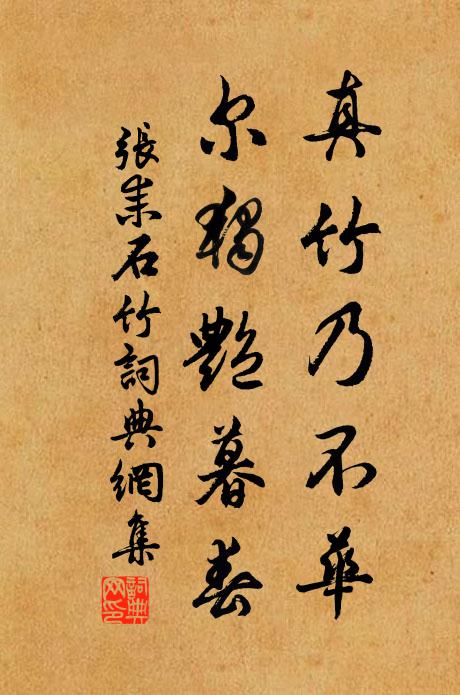 真竹乃不華
尔獨艷暮春
張耒石竹詞典網集
詞典
网印